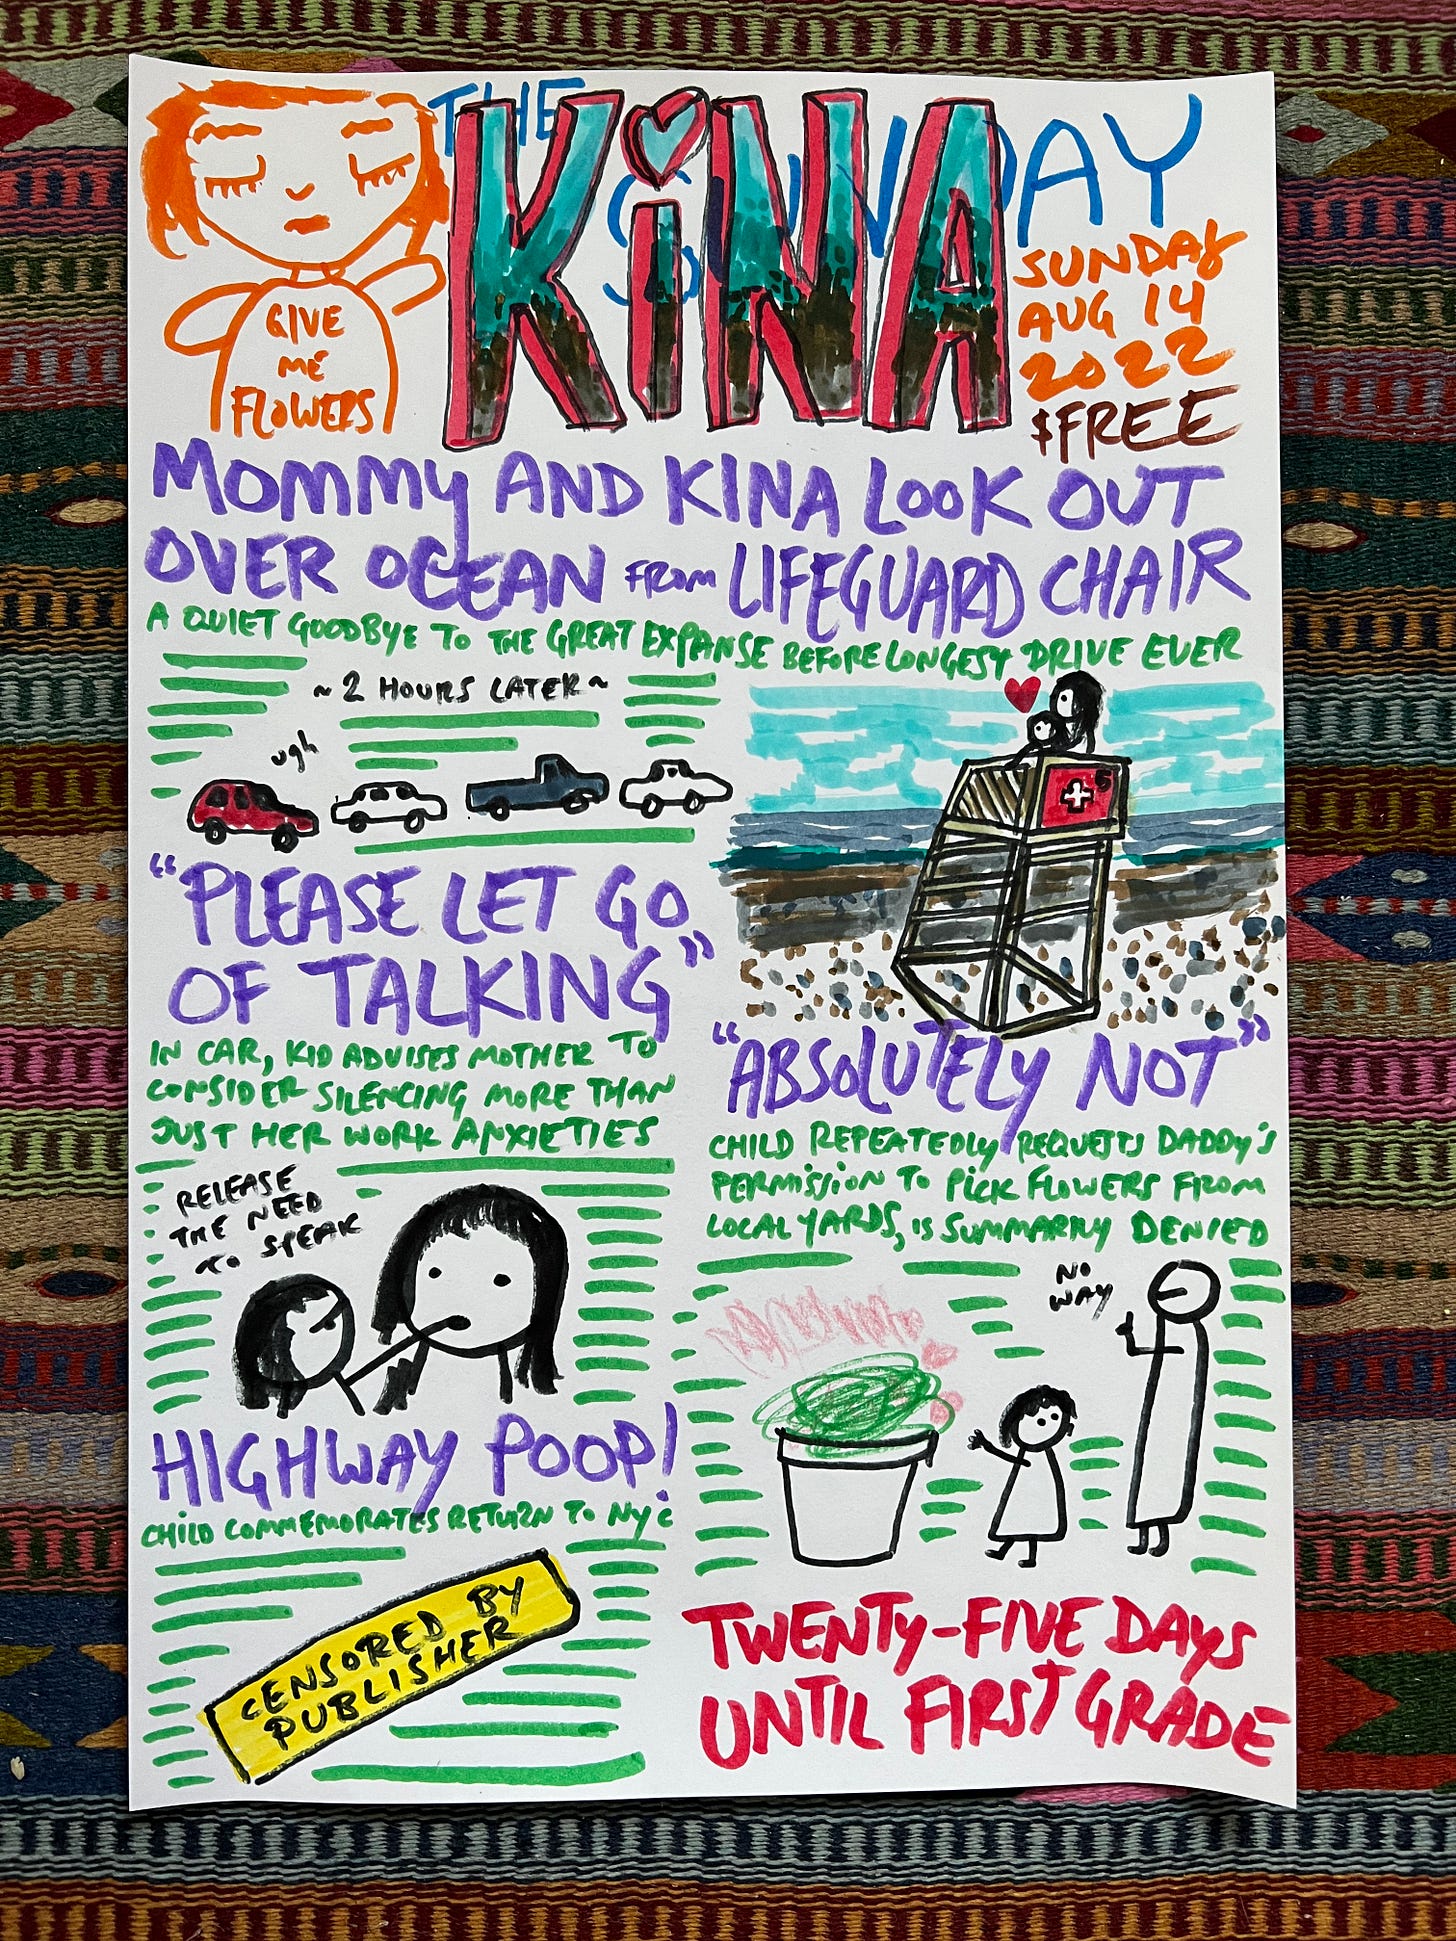 THE
SUNDAY
KiNA
GIVE
ME
FLOWERS
SUNDAY
AUG 14
2022
$FREE
MOMMY AND KINA LOOK OUT
OVER OCEAN FROM LIFEGUARD CHAIR
A QUIET GOODBYE TO THE GREAT EXPANSE BEFORE LONGEST DRIVE EVER
~2 HOURS LATER~
ugh
"PLEASE LET GO
OF TALKING"
IN CAR, KID ADVISES MOTHER TO
CONSIDER SILENCING MORE THAN
JUST HER WORK ANXIETIES
RELEASE
THE NEED
TO SPEAK
HIGHWAY POOP!
CHILD COMMEMORATES RETURN TO NYC
CENSORED BY
PUBLISHER
"ABSOLUTELY NOT"
CHILD REPEATEDLY REQUESTS DADDY'S
PERMISSION TO PICK FLOWERS FROM
LOCAL YARDS, IS SUMMARILY DENIED
NO
WAY
TWENTY-FIVE DAYS
UNTIL FIRST GRADE